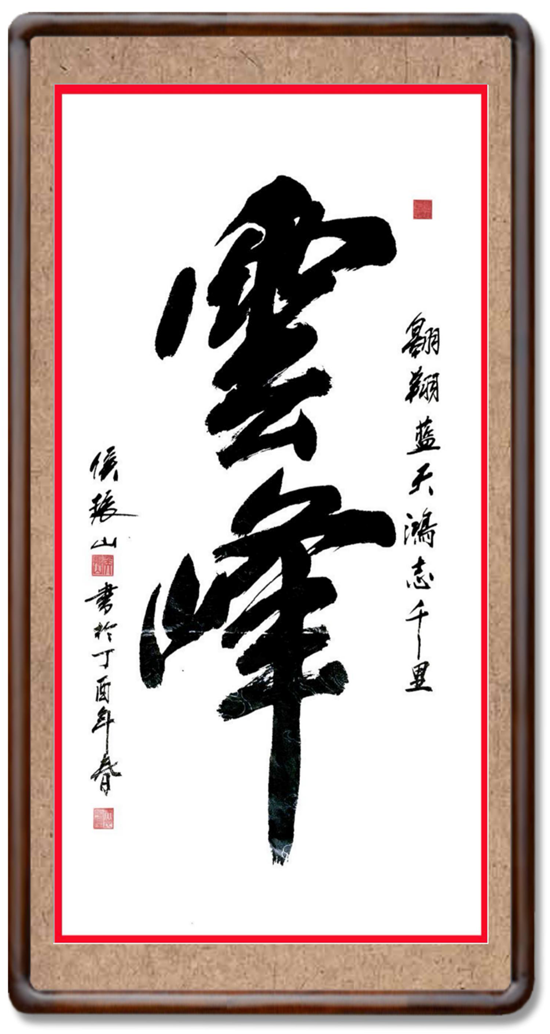 翱翔蓝天鸿志千里
雲峰
侯振山
書於丁酉年春